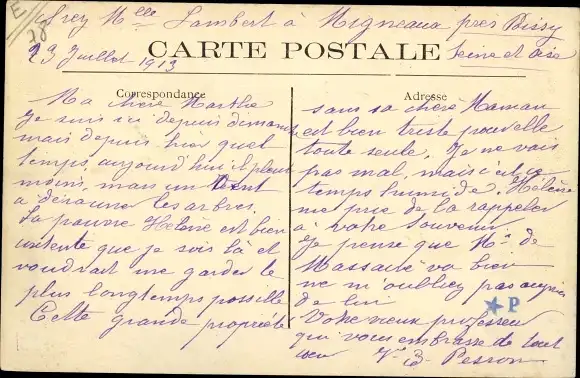 chez Melle Lambert à Migneaux près Poissy
Seine et Oise
23 Juillet 1913
CARTE POSTALE
Correspondance
Ma chère Marthe
Je suis ici depuis dimanche
mais depuis hier quel
temps, aujourd'hui il pleut
moins, mais un vent
a déraciner les arbres.
La pauvre Hélène est bien
contente que je sois là et
voudrait me garder le
plus longtemps possible
Cette grande propriété
Adresse
sans sa chère Maman
est bien triste pour elle
toute seule. Je ne vais
pas mal, mais c'est
temps humide. Hélène
me prie de la rappeler
à votre souvenir.
Je pense que Mr de
va bien
ne m'oubliez pas auprès
de lui
Votre vieux professeur
qui vous embrasse de tout
cœur
P